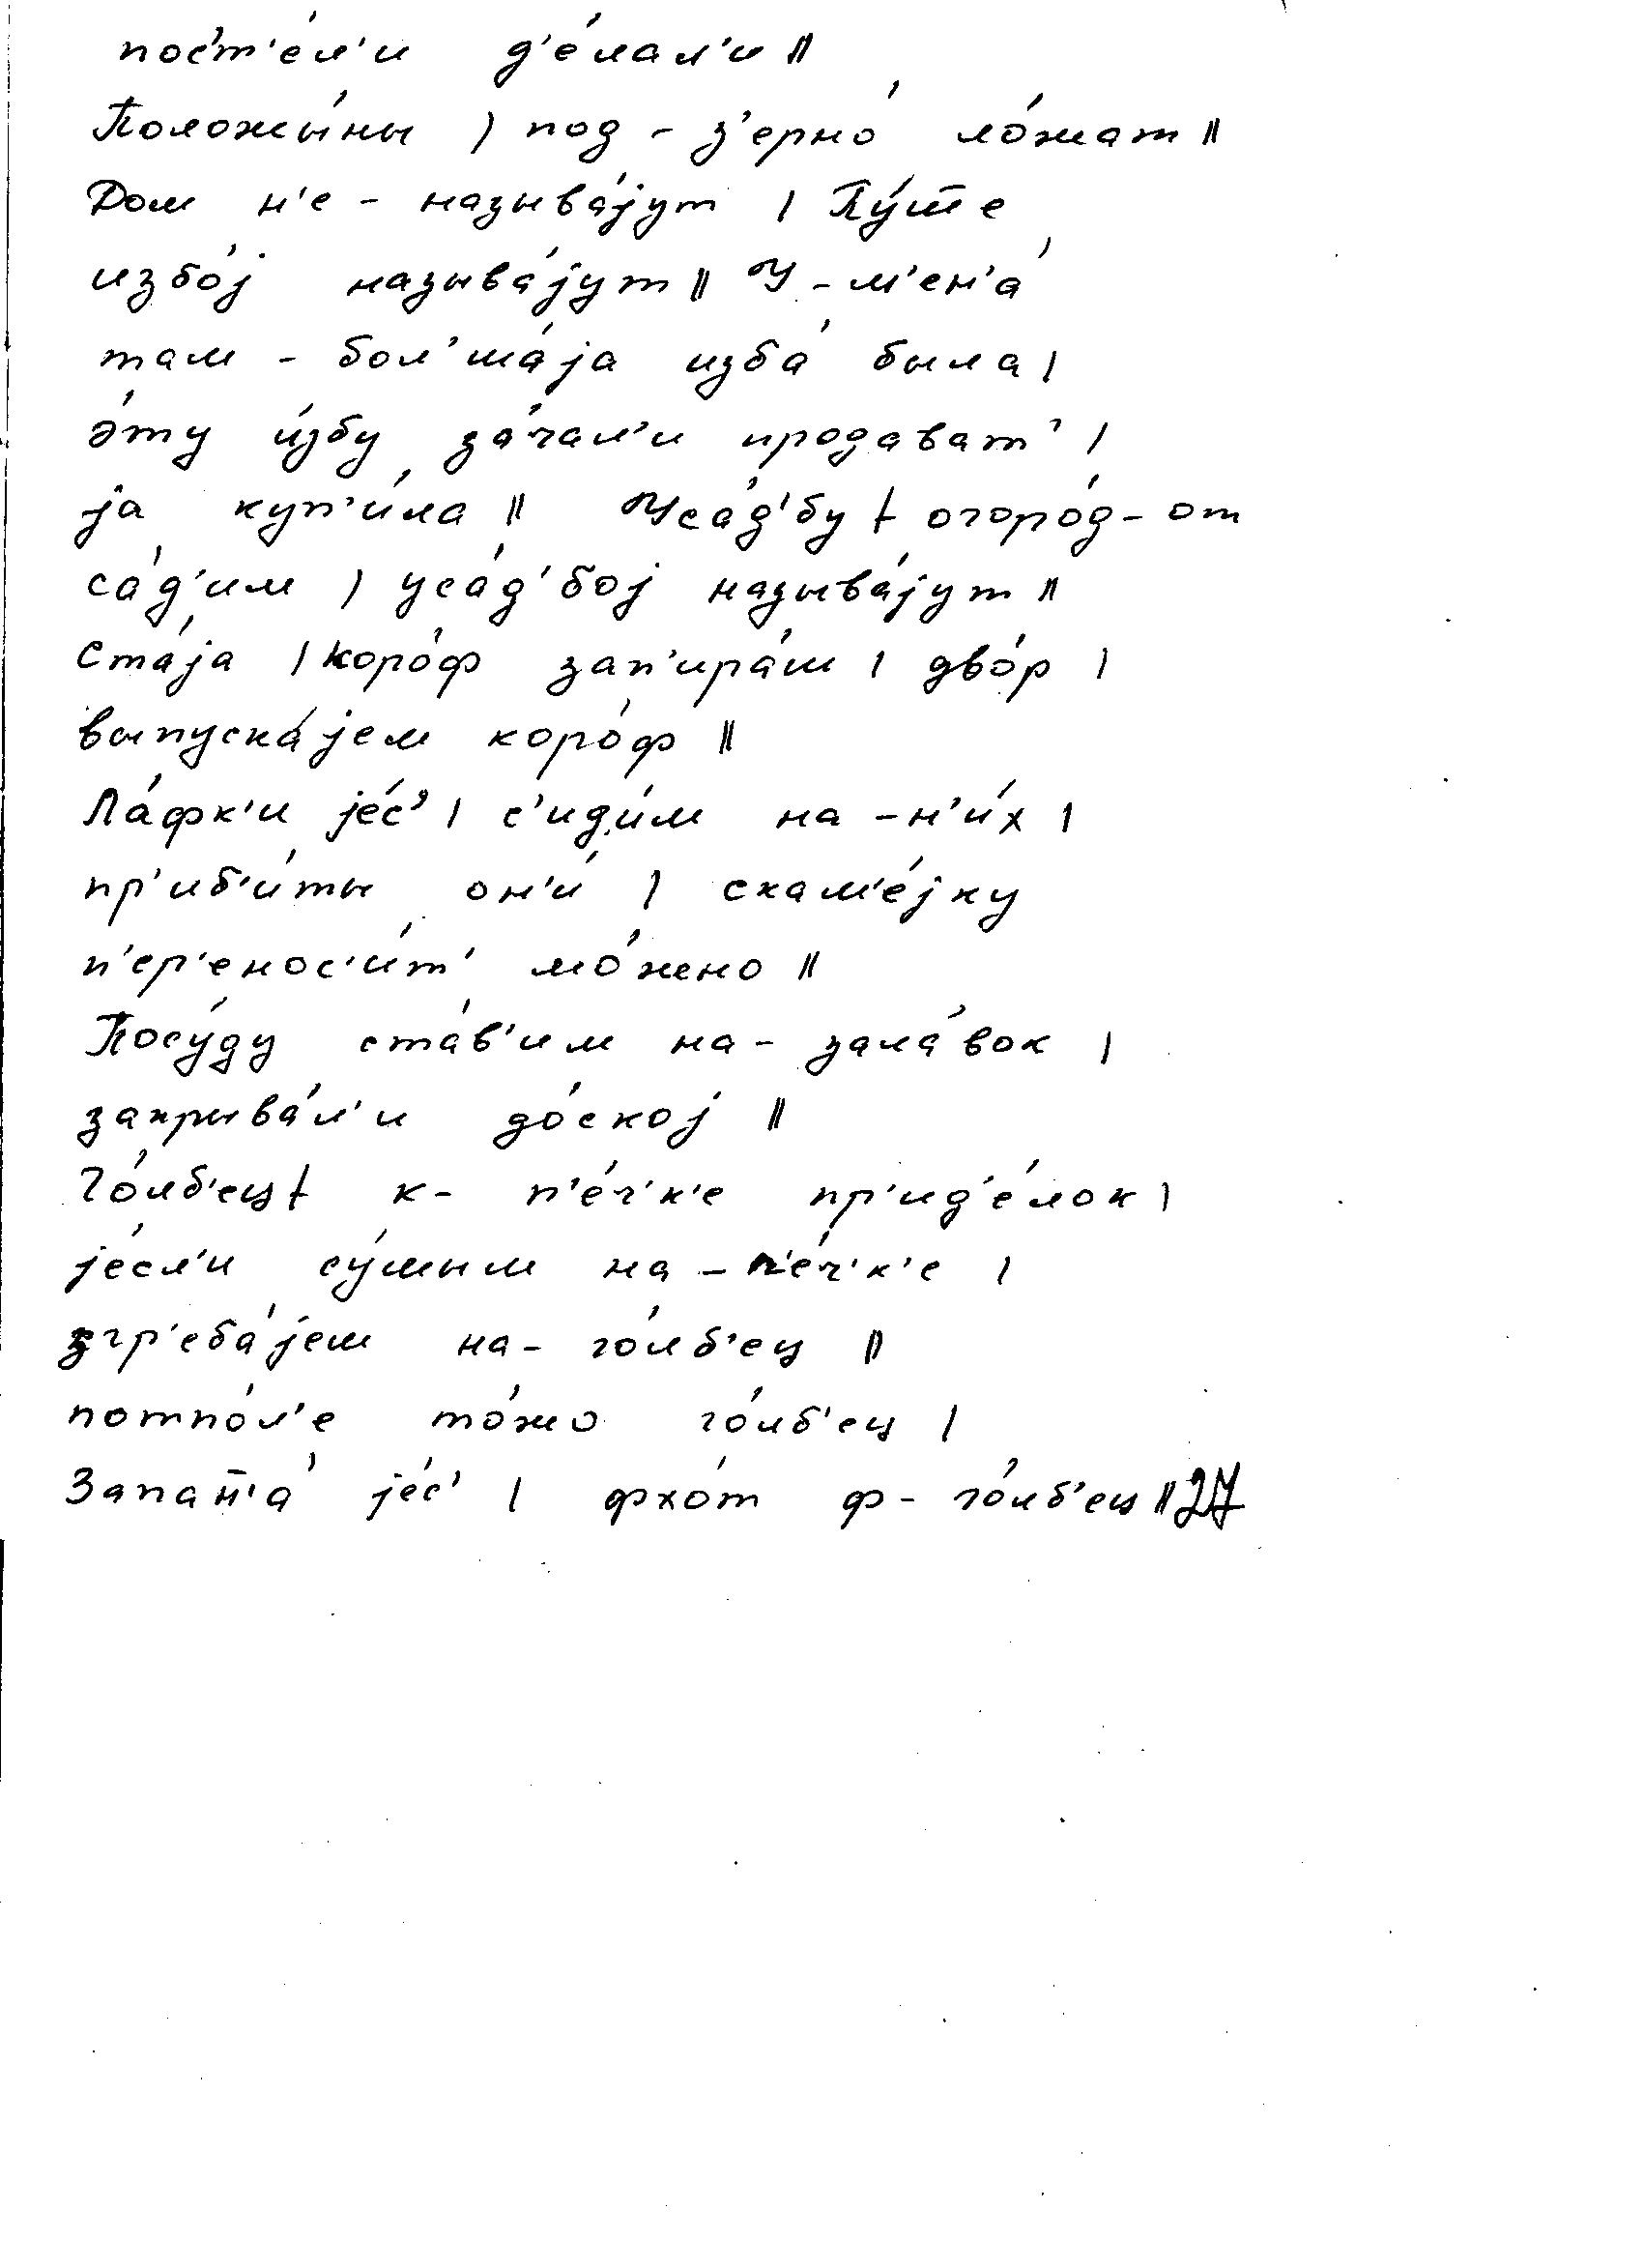 пос'т'е́л'и д'е́лал'и ||
Положы́ны | под - з'ерно́ ло́жат ||
Дом н'е - называ́јут | Пу́т̄е
избо́ј называ́јут || У - м'ен'а́
там - бол'ша́ја изба́ была |
э́ту и́збу за́чал'и продават' |
ја куп'и́ла || Уса́д'бу ț огоро́д - от
са́д'им | уса́д'бој называ́јут ||
Ста́ја | коро́ф зап'ира́ш | дво́р |
выпуска́јем коро́ф ||
Ла́фк'и је́с' | с'иди́м на - н'и́х |
пр'иб'и́ты он'и́ | скам'е́јку
п'ер'енос'и́т' мо́жено ||
Посу́ду ста́в'им на - зала́вок |
закрыва́л'и до́ској ||
Го́лб'ец ț к - п'е́ч'к'е пр'ид'е́лок |
је́сл'и су́шым на - п'е́ч'к'е |
згр'еба́јеш на - го́лб'ец ||
потпо́л'е то́жо го́лб'ец |
Запан̄'а́ је́с' | фхо́т ф - го́лб'ец || 27